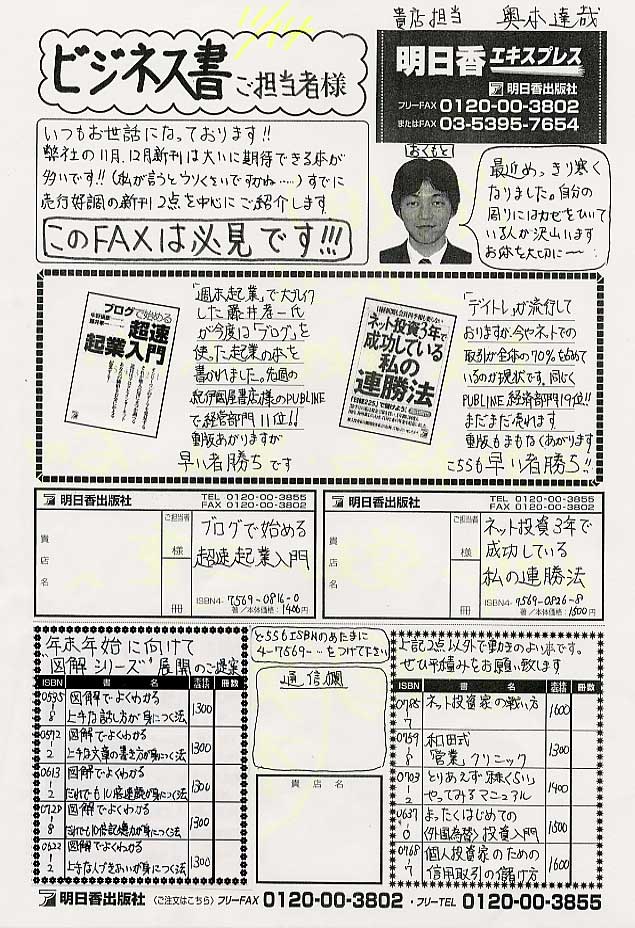 11/24
貴店担当 奥本達哉
ビジネス書ご担当者様
明日香エキスプレス
明日香出版社
フリーFAX 0120-00-3802
またはFAX 03-5395-7654
いつもお世話になっております!!
弊社の11月、12月新刊は大いに期待できる本が
多いです!!(私が言うとウソくさいですかね……)すでに
売行好調の新刊2点を中心にご紹介します
このFAXは必見です!!!
おくもと
最近めっきり寒く
なりました。自分の
周りにはカゼをひいて
いる人が沢山います
お体を大切に〜
ブログで始める
超速
起業入門
「週末起業」で大ブレイク
した藤井孝一氏
が今度は「ブログ」を
使った起業の本を
書かれました。先週の
紀伊國屋書店様のPUBLINE
で経営部門11位!!
重版あがりますが
早い者勝ちです
ネット投資3年で
成功している
私の
連勝法
「デイトレ」が流行して
おりますが今やネットでの
取引が全体の70%を占めて
いるのが現状です。同じく
PUBLINE経済部門19位!!
まだまだ売れます
重版もまもなくあがります
こちらも早い者勝ち!!
明日香出版社
TEL 0120-00-3855
FAX 0120-00-3802
貴店名
ご担当者
様
冊
ブログで始める
超速起業入門
ISBN4-7569-0816-0
著/本体価格:1400円
明日香出版社
TEL 0120-00-3855
FAX 0120-00-3802
貴店名
ご担当者
様
冊
ネット投資3年で
成功している
私の連勝法
ISBN4-7569-0826-8
著/本体価格:1500円
年末年始に向けて
"図解シリーズ"展開のご提案
ISBN 書名 本体価格 冊数
0595-8 図解でよくわかる
上手な話し方が身につく法 1300
0572-2 図解でよくわかる
上手な文章の書き方が身につく法 1300
0613-2 図解でよくわかる
だれでも10倍速読が身につく法 1300
0728-8 図解でよくわかる
だれでも10倍記憶力が身につく法 1300
0622-2 図解でよくわかる
上手な人づきあいが身につく法 1300
どちらもISBNのあたまに
4-7569-…をつけて下さい
通信欄
貴店名
上記2点以外で動きのよい本です。
ぜひ平積みをお願い致します
ISBN 書名 本体価格 冊数
0785-7 ネット投資家の戦い方 1600
0759-8 和田式
「営業」クリニック 1300
0703-2 とりあえず「株くらい」
やってみるマニュアル 1400
0637-0 まったくはじめての
〈外国為替〉投資入門 1500
0768-7 個人投資家のための
信用取引の儲け方 1600
明日香出版社 〈ご注文はこちら〉 フリーFAX 0120-00-3802 ・フリーTEL 0120-00-3855